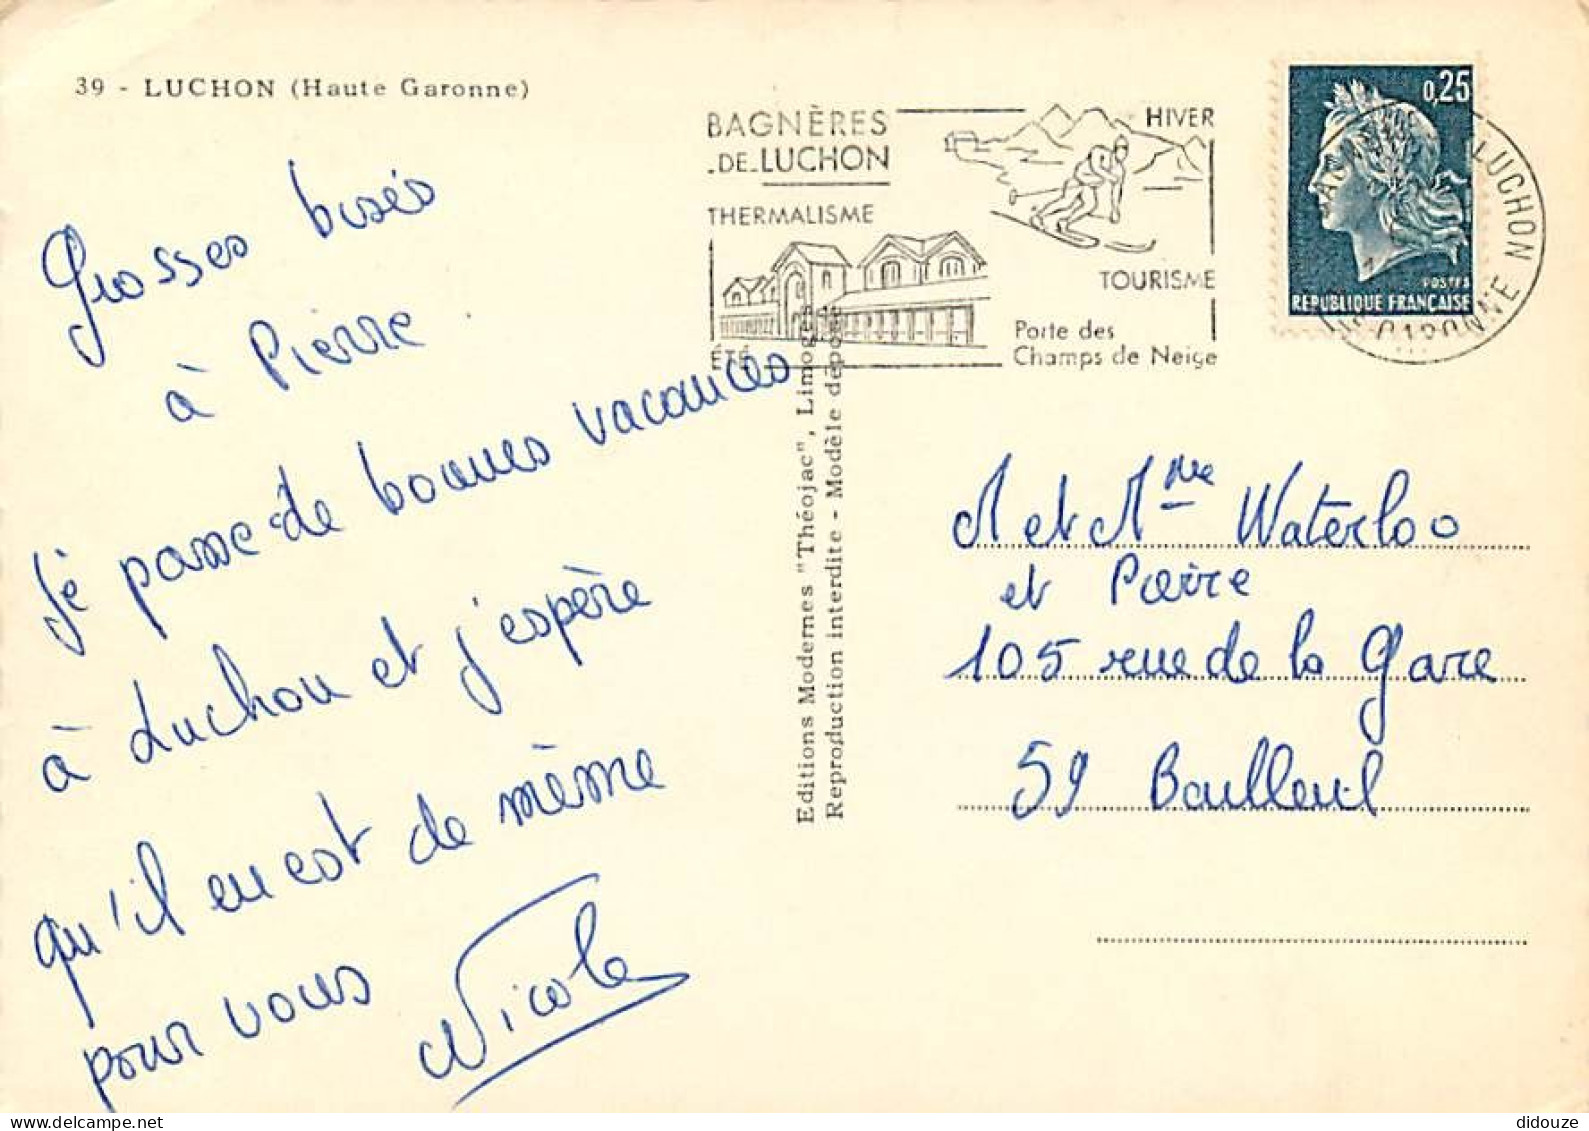 39 - LUCHON (Haute Garonne)
Grosses bisés
à Pierre
Je passe de bonnes vacances
à Luchon et j'espère
qu'il en est de même
pour vous
Nicole
BAGNÈRES
DE LUCHON
THERMALISME
ÉTÉ
HIVER
TOURISME
Porte des
Champs de Neige
0,25
POSTES
REPUBLIQUE FRANÇAISE
LUCHON
GARONNE
Editions Modernes "Théojac", Limoges
Reproduction interdite - Modèle déposé
M et Mme Waterloo
et Pierre
105 rue de la Gare
59 Bailleul
didouze